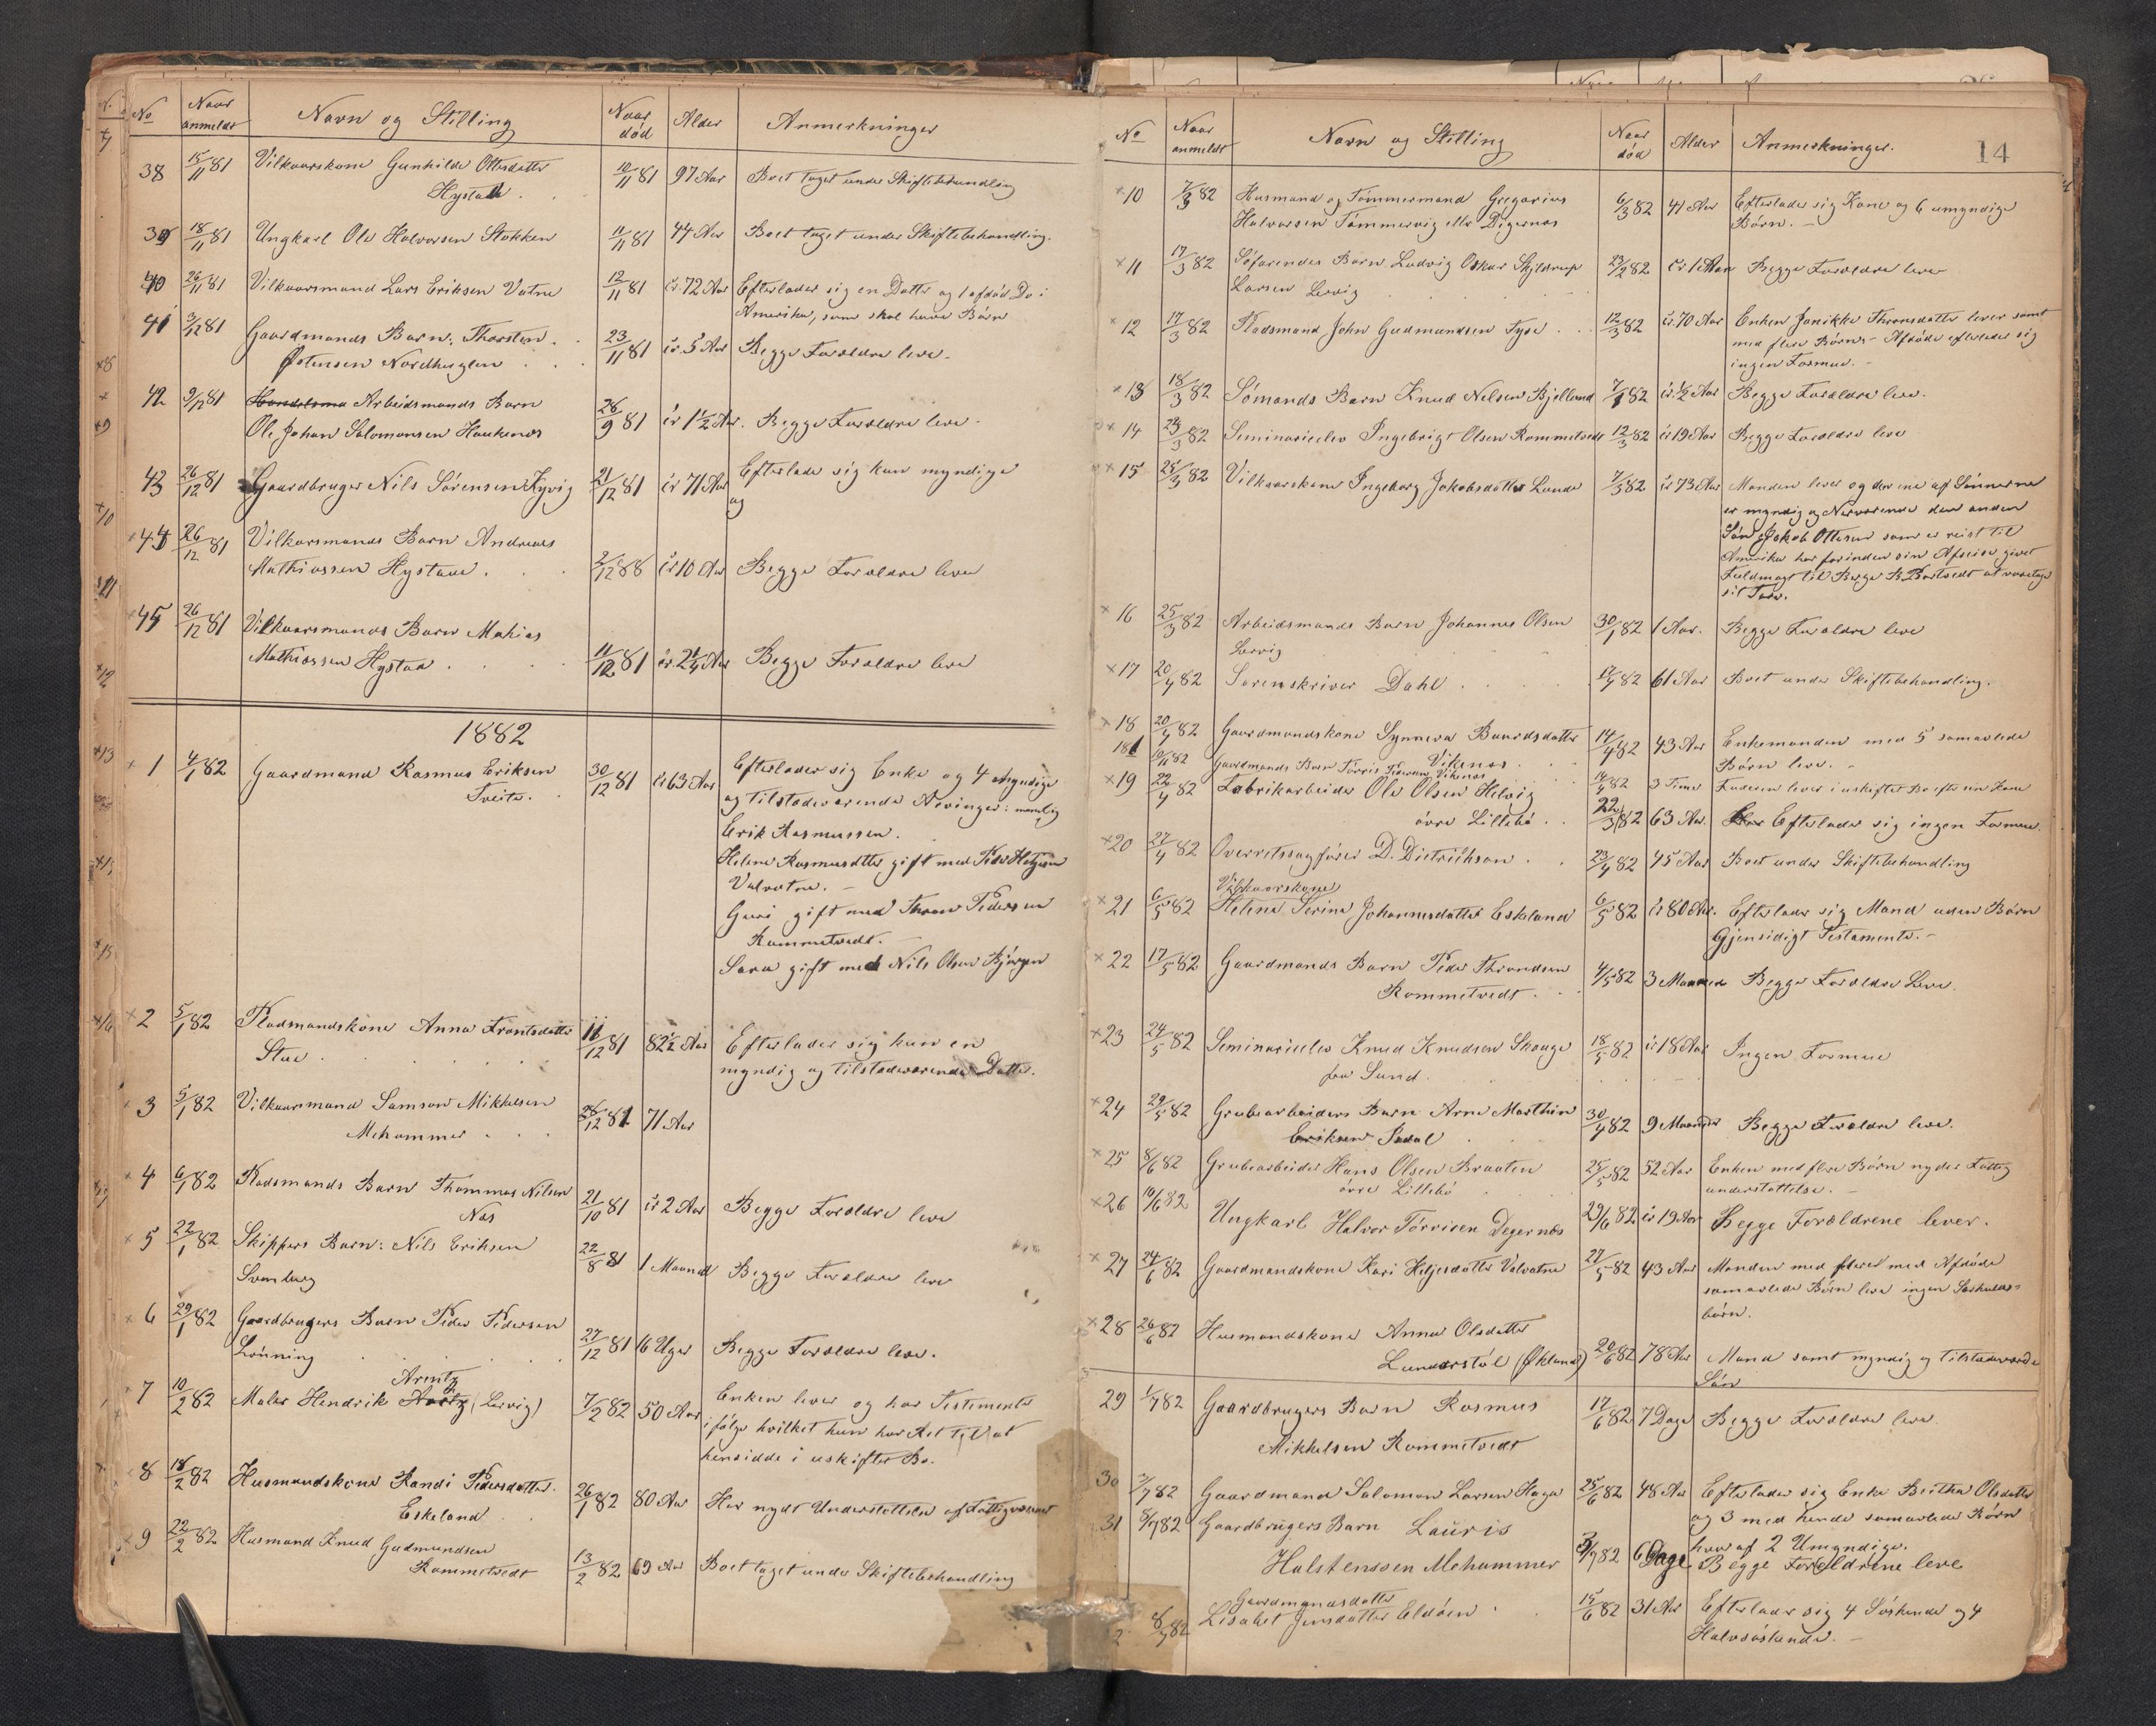 No Naar anmeldt Navn og Stilling Naar död Alder Anmerkninger
38 15/11 81 Vilkaarskone Gunhilde Ottersdatter 10/11 81 97 Aar Boet taget under Skiftebehandling
Hystad
39 18/11 81 Ungkarl Ole Halvorsen Stokken 11/11 81 44 Aar Boet taget under Skiftebehandling.
40 26/11 81 Vilkaarsmand Lars Eriksen Vatne 12/11 81 ir 72 Aar Efterlader sig en Datter og 1 afdöd Do i
Amerika, som skal have Börn
41 3/12 81 Gaardmands Barn: Thorsten
Østensen Nordhuglen 23/11 81 ir 5 Aar Begge Forældre leve.
42 9/12 81 Handelsma Arbeidsmands Barn
Ole Johan Salomonsen Haukenæs 28/9 81 ir 1 1/2 Aar. Begge Forældre leve.
43 26/12 81 Gaardbruger Nils Sörensen Kyvig 21/12 81 ir 71 Aar Efterlader sig kun myndige
og
44 26/12 81 Vilkarsmands Barn Andreas
Mathiassen Hystad 2/12 88 ir 10 Aar Begge Forældre leve
45 26/12 81 Vilkaarsmands Barn Mathias
Mathiassen Hystad 11/12 81 ir 2 1/4 Aar Begge Forældre leve
1882
1 4/1 82 Gaardmand Rasmus Eriksen 30/12 81 ir 63 Aar Efterlader sig Enke og 4 myndige
Tveite. og tilstedeværende Arvinger: nemlig
Erik Rasmussen.
Helene Rasmusdtter gift med Peder Heljesen
Valvatne.
Guri gift med Thron Pedersen
Rommetvedt.
Sara gift med Nils Olsen Bjørgen
2 5/1 82 Pladsmandskone Anna Frantsdatter 11/12 81 82 1/2 Aar Efterlader sig kun en
Stue myndig og tilstedeværende Datter.
3 5/1 82 Vilkaarsmand Samson Mikkelsen 28/12 81 71 Aar
Mehammer
4 6/1 82 Pladsmands Barn Thommas Nilsen
Næs 21/10 81 ir 2 Aar Begge Forældre leve
5 22/1 82 Skippers Barn: Nils Eriksen
22/8 81 1 Maaned Begge Forældre leve
6 29/1 82 Gaardbrugers Barn Peder Pedersen
Lönning 27/12 81 6 Uger Begge Forældre leve.
Arentz
7 10/2 82 Maler Hendrik (Lervig) 7/2 82 50 Aar Enken lever og har Testemente
ifølge hvilket hun har Ret til at
hensidde i uskiftet Bo.
8 18/2 82 Husmandskone Randi Pedersdatter.
Eskeland 26/1 82 80 Aar Har nydt Understøttelse af Fattigvæsenet
9 22/2 82 Husmand Knud Gudmundsen
Rommetvedt 13/2 82 69 Aar Boet taget under Skiftebehandling
14
No Naar anmeldt Navn og Stilling Naar död Alder Anmerkninger.
10 7/3 82 Husmand og Tömmermand Gregorius 6/3 82 41 Aar Efterlader sig Kone og 6 umyndige
Halvorsen Tömmervig eller Digernæs Börn.
11 17/3 82 Söfarendes Barn Ludvig Oskar Skjeldrup 23/2 82 ir 1 Aar Begge Forældre leve
Larsen Lervig
12 17/3 82 Pladsmand John Gudmundsen Tyse 12/3 82 ir 70 Aar Enken Janikke Thronsdatter lever samt
med flere Børn. Afdøde efterlader sig
ingen Formue.
13 18/3 82 Sömands Barn Knud Nelsen Bjelland 7/1 82 ir 1/2 Aar Begge Forældre leve.
14 23/3 82 Seminarieelev Ingebrigt Olsen Rommetvedt 12/3 82 ir 19 Aar Begge Forældre leve
15 25/3 82 Vilkaarskone Ingeborg Jakobsdatter Lunde 7/3 82 ir 73 Aar Manden lever og den ene af Sönnerne
er myndig og Nærværende den anden
Sön Jakob Ottesen som er reist til
Amerika har forinden sin Afreise givet
Fuldmagt til Berge B. Bortvedt at varetage
sit Tarv.
16 25/3 82 Arbeidsmands Barn Johannes Olsen 30/1 82 1 Aar. Begge Forældre leve
Lervig
17 20/4 82 Sorenskriver Dahl 12/4 82 61 Aar Boet under Skiftebehandling.
18 20/4 82 Gaardmandskone Synneva Baardsdatter 14/4 82 43 Aar Enkemanden med 5 samavlede
Vikenæs Börn leve.
18 1 10/11 82 Gaardmands Barn Törris Pedersen Vikenæs 14/4 82 3 Timer Faderen lever i uskiftet Bo efter sin Kone
19 22/4 82 Fabrikarbeider Ole Olsen Helvig
övre Lillebö 22/3 82 63 Aar. Efterlader sig ingen Formue.
20 27/4 82 Overretssagförer D. Dietrichson 23/4 82 45 Aar Boet under Skiftebehandling
Vilkaarskone
21 6/5 82 Helena Serina Johannesdatter Eskeland 6/5 82 ir 80 Aar. Efterlader sig Mand uden Börn
Gjensidigt Testamente.
22 17/5 82 Gaardmands Barn Peder Throndsen
Rommetvedt 4/5 82 3 Maaneder Begge Forældre Leve.
23 24/5 82 Seminarieelev Knud Knudsen Skauge 18/5 82 ir 18 Aar Ingen Formue
fra Sund.
24 29/5 82 Grubearbeiders Barn Arne Marthin 30/4 82 9 Maaneder Begge Forældre leve.
Eriksen
25 8/6 82 Grubearbeider Hans Olsen Braaten 25/5 82 52 Aar Enken med flere Børn nyder Fattig
övre Lillebö understøttelse.
26 10/6 82 Ungkarl Halvor Törrisen Degernæs 29/6 82 ir 19 Aar Begge Forældrene lever.
27 24/6 82 Gaardmandskone Kari Heljesdatter Valvatne 27/5 82 43 Aar Manden med flere med Afdøde
samavlede Børn leve ingen Særkulds-
börn.
28 26/6 82 Husmandskone Anna Olsdatter
Lunderstöl (Økland) 20/6 82 78 Aar Mand samt myndig og tilstedeværende
Sön
29 1/7 82 Gaardbrugers Barn Rasmus 17/6 82 7 Dage Begge Forældre leve.
Mikkelsen Rommetvedt
30 3/7 82 Gaardmand Salomon Larsen Haga 25/6 82 48 Aar Efterlader sig Enke Bertha Olsdatter
og 3 med hende samavlede Børn
hvoraf 2 Umyndige.
31 8/7 82 Gaardbrugers Barn Lauris
Halstenssen Mehammer 3/7 82 6 Dage Begge Forældrene leve
Gaardmandsdatter
2 8/7 82 Lisabet Jensdatter Eldöen 15/6 82 31 Aar Efterlader sig 4 Söskende og 4
Halvsöskende.